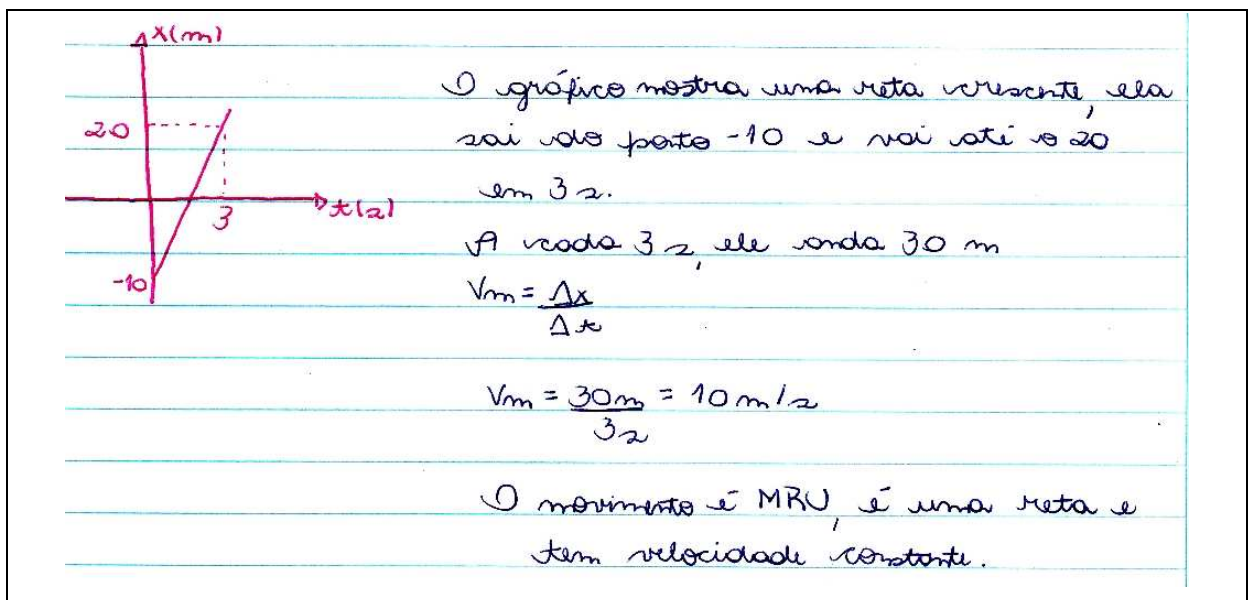 x(m)
20
3
t(s)
-10
O gráfico mostra uma reta crescente, ela
sai do ponto -10 e vai até o 20
em 3s.
A cada 3s, ele anda 30 m
Vm = Δx
Δt
Vm = 30m = 10 m/s
3s
O movimento é MRU, é uma reta e
tem velocidade constante.